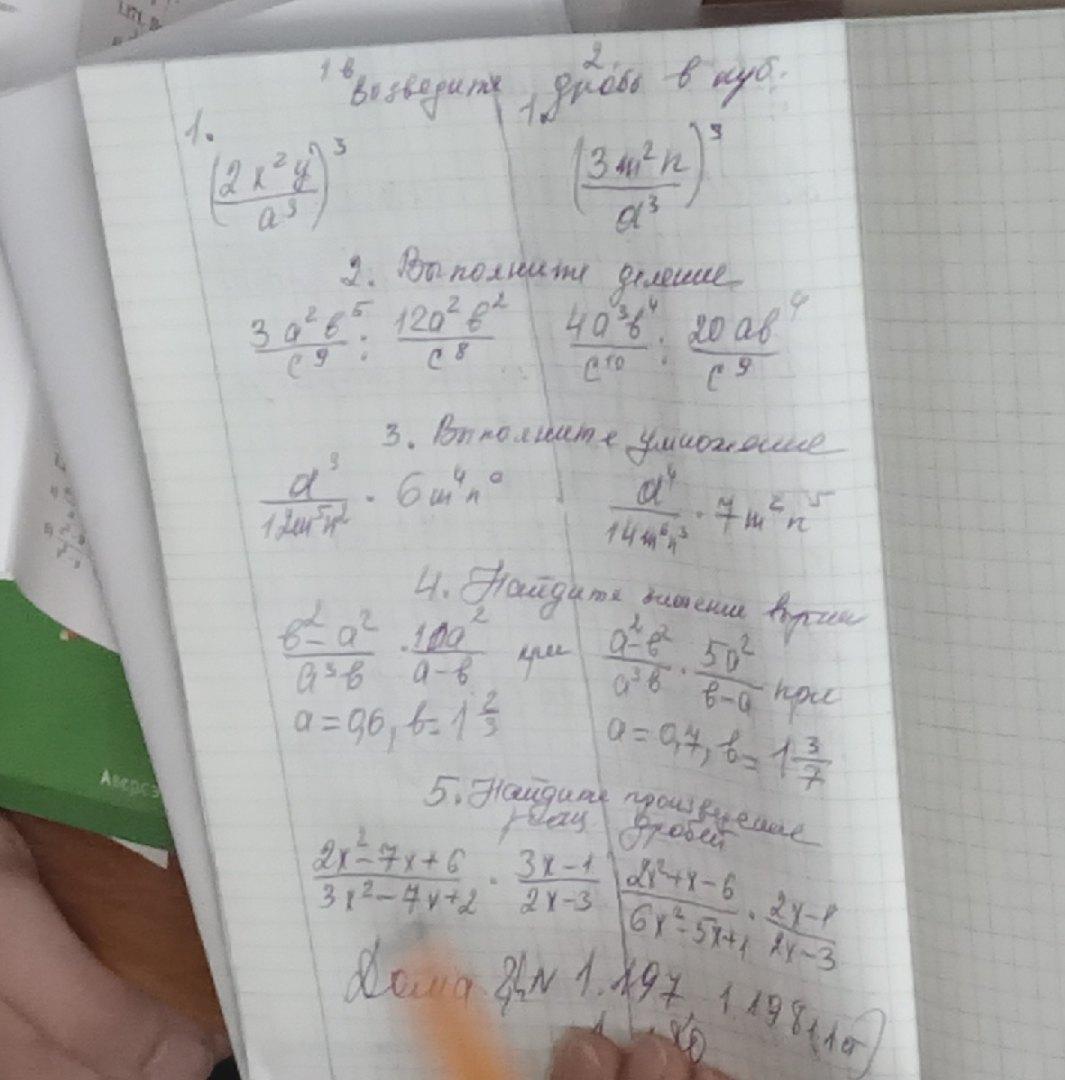 1в 2.
Возведите дробь в куб.
1. (2x²y/a³)³ 1. (3m²n/a³)³
2. Выполните деление
3a²b⁵/c⁹ : 12a²b²/c⁸ 4a³b⁴/c¹⁰ : 20ab⁴/c⁹
3. Выполните умножение
a³/12m⁵n² · 6m⁴n a⁴/14m⁶n³ · 7m²n⁵
4. Найдите
b²-a²/a³b · 10a²/a-b при a²-b²/a³b · 5a²/b-a при
a=0,6, b=1 2/3 a=0,7, b=1 3/7
5. Найдите произведение
рац дробей
2x²-7x+6/3x²-7x+2 · 3x-1/2x-3 2x²+x-6/6x²-5x+1 · 2x-1/2x-3
Дома N 1.197 1.198
Аверсэ